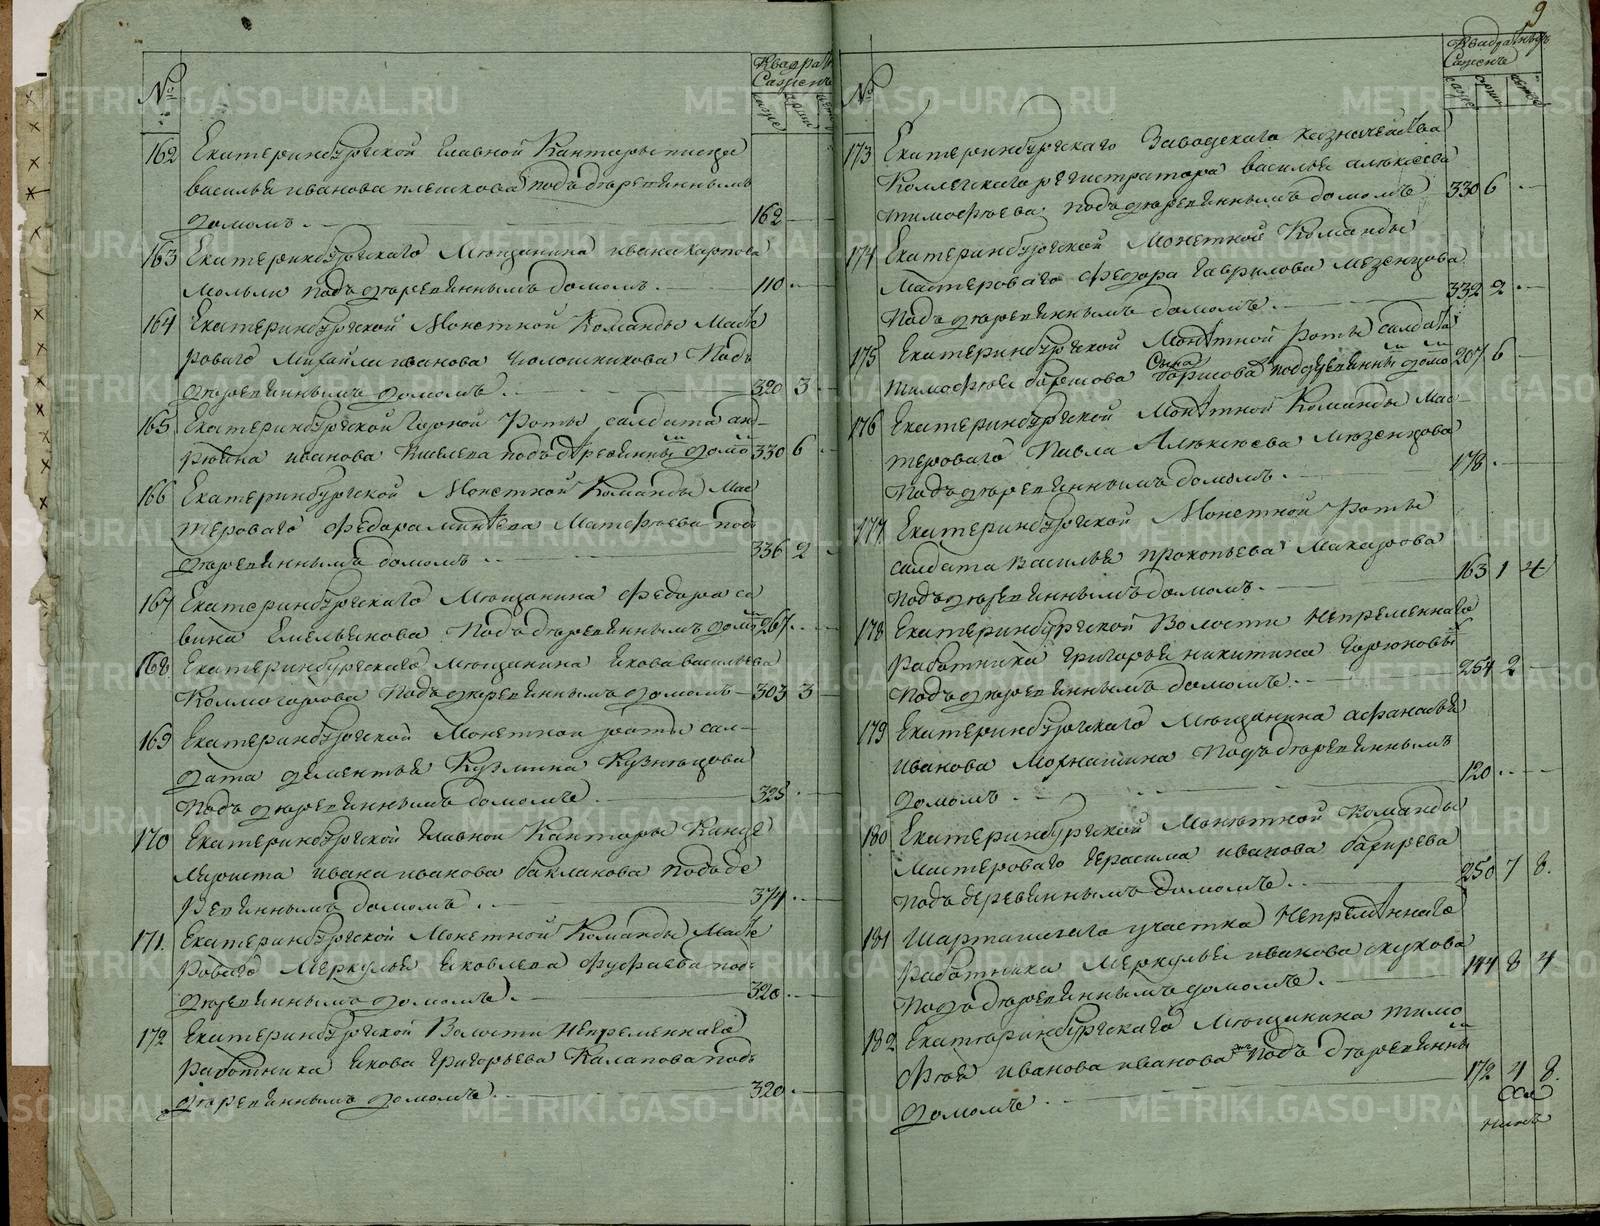 №
Квадра
Сажень
саже
арши
162
Екатеринбургской Главной Канторы писца
василья иванова плешкова подъ деревяннымъ
домомъ
162
163
Екатеринбургскаго Мѣщанина ивана карпова
подъ деревяннымъ домомъ
110
164
Екатеринбургской Монетной Команды Масте
роваго Михайла иванова подъ
деревяннымъ домомъ
320 3
165
Екатеринбургской Горной Роты салдата ан
иванова Киселева подъ деревянны домо
330 6
166
Екатеринбургской Монетной Команды Мас
тероваго Федора Матфѣева подъ
деревяннымъ домомъ
336 2
167
Екатеринбургскаго Мѣщанина Федора са
вина Емельянова подъ деревяннымъ домо
267
168
Екатеринбургскаго Мѣщанина Якова васильева
Колмогорова подъ деревяннымъ домомъ
303 3
169
Екатеринбургской Монетной роты сал
дата дементья Кузмина Кузнецова
подъ деревяннымъ домомъ
325
170
Екатеринбургской Главной Канторы Канце
ивана иванова бакланова подъ де
ревяннымъ домомъ
374
171
Екатеринбургской Монетной Команды Масте
роваго Меркулья Яковлева Фуфаева подъ
деревяннымъ домомъ
320
172
Екатеринбургской Волости Непременнаго
работника Якова Григорьева подъ
деревяннымъ домомъ
320
9
№
Квадратныхъ
Сажень
саже
арши
173
Екатеринбургскаго Заводскаго казначейства
Коллежскаго регистратора василья алексѣева
тимофѣева подъ деревяннымъ домомъ
330 6
174
Екатеринбургской Монетной Команды
Мастероваго Федора Гаврилова Мезенцова
подъ деревяннымъ домомъ
332 2
175
Екатеринбургской Монетной роты салдата
тимофѣя борисова борисова подъ деревянны домо
207 6
176
Екатеринбургской Монетной Команды Мас
тероваго Павла Алексѣева Мезенцова
подъ деревяннымъ домомъ
178
177
Екатеринбургской Монетной роты
салдата Василья прокопьева Макарова
подъ деревяннымъ домомъ
163 1 4
178
Екатеринбургской Волости Непременнаго
работника григорья никитина
подъ деревяннымъ домомъ
254 2
179
Екатеринбургскаго Мѣщанина афанасья
иванова подъ деревяннымъ
домомъ
120
180
Екатеринбургской Монетной Команды
Мастероваго герасима иванова
подъ деревяннымъ домомъ
250 7 8
181
Шарташскаго участка Непременнаго
работника Меркулья иванова
подъ деревяннымъ домомъ
144 8 4
182
Екатеринбургскаго Мѣщанина тимо
фѣя иванова иванова подъ деревянны
домомъ
172 4 8
METRIKI.GASO-URAL.RU